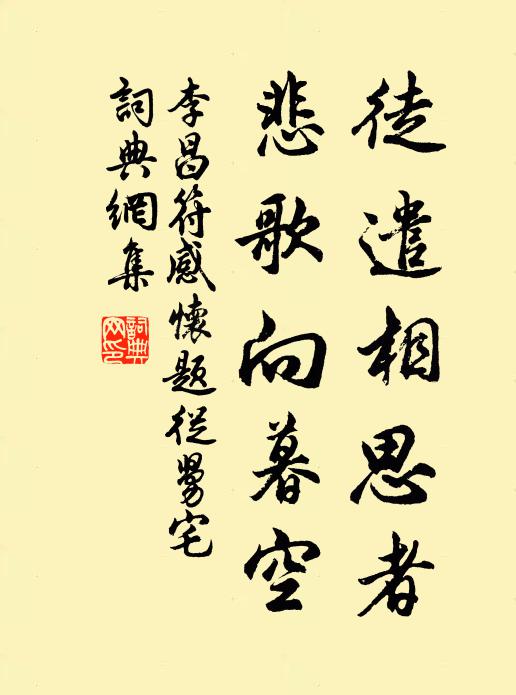 徒遣相思者
悲歌向暮空
李昌符感懷題從舅宅
詞典網集
詞典網印